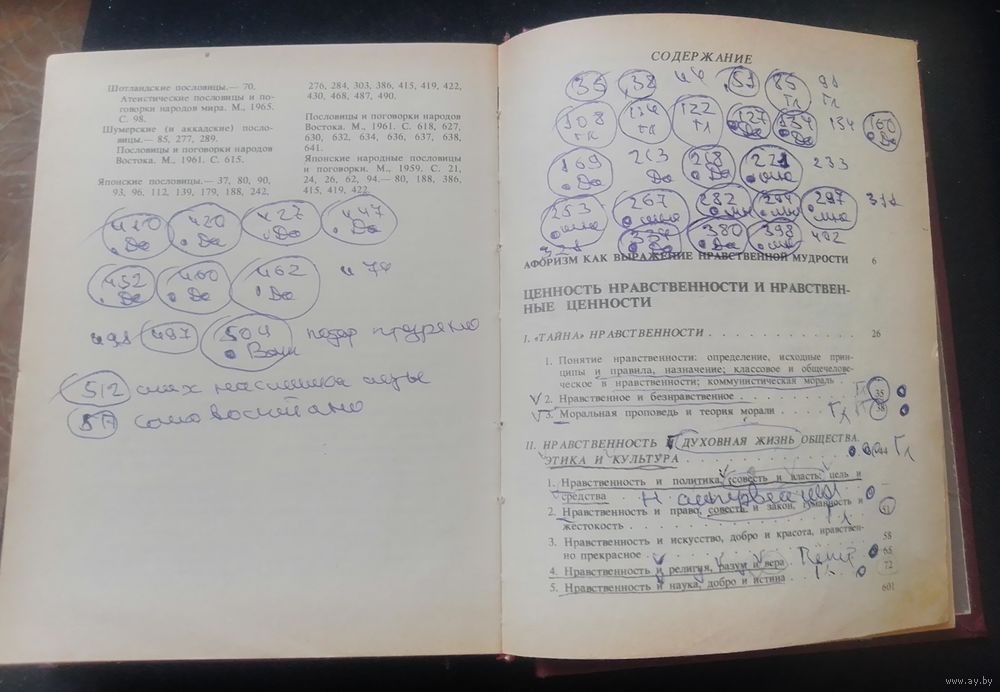 Шотландские пословицы.— 70.
Атеистические пословицы и по-
говорки народов мира. М., 1965.
С. 98.
Шумерские (и аккадские) посло-
вицы.— 85, 277, 289.
Пословицы и поговорки народов
Востока. М., 1961. С. 615.
Японские пословицы.— 37, 80, 90,
93, 96, 112, 139, 179, 188, 242,
276, 284, 303, 386, 415, 419, 422,
430, 468, 487, 490.
Пословицы и поговорки народов
Востока. М., 1961. С. 618, 627,
630, 632, 634, 636, 637, 638,
641.
Японские народные пословицы
и поговорки. М., 1959. С. 21,
24, 26, 62, 94.— 80, 188, 386,
415, 419, 422.
410 420 427 447
Да Да Да Да
452 460 462 474
Да Да Да
491 497 504
512
517
СОДЕРЖАНИЕ
35 38 44 51 85 91
Гл Гл
108 114 122 127 134 154 160
Гл Гл Гл Да Да Да
169 213 218 221 233
Да Да
253 267 282 297 311
321 380 398 402
Да Да
АФОРИЗМ КАК ВЫРАЖЕНИЕ НРАВСТВЕННОЙ МУДРОСТИ 6
ЦЕННОСТЬ НРАВСТВЕННОСТИ И НРАВСТВЕН-
НЫЕ ЦЕННОСТИ
I. «ТАЙНА» НРАВСТВЕННОСТИ . . . . . . . . . . . . 26
1. Понятие нравственности: определение, исходные прин-
ципы и правила, назначение; классовое и общечелове-
ческое в нравственности; коммунистическая мораль .
2. Нравственное и безнравственное . . . . . . . . . 35
3. Моральная проповедь и теория морали . . Гл 38
II. НРАВСТВЕННОСТЬ И ДУХОВНАЯ ЖИЗНЬ ОБЩЕСТВА.
ЭТИКА И КУЛЬТУРА . . . . . . . . . . . . 44 Гл
1. Нравственность и политика, совесть и власть; цель и
средства .
2. Нравственность и право, совесть и закон, гуманность и
жестокость . . . . . . . . . . . . . 51
3. Нравственность и искусство, добро и красота, нравствен-
но прекрасное . . . . . . . . . . . . 58
4. Нравственность и религия, разум и вера . 65
5. Нравственность и наука, добро и истина . . 72
601
www.ay.by